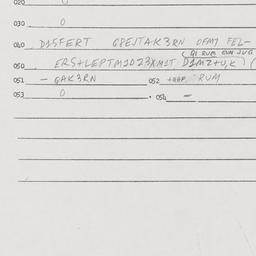 020 0
030 0
040 DISFERT G8EJTAK3RN OFMY FEL-
(BI RUM GUN JUG
050 ERS+LEPTM1D23XM1T D1MZ+U,K ) (
051 - GAK3RN 052 RUM
053 0 • 054 -